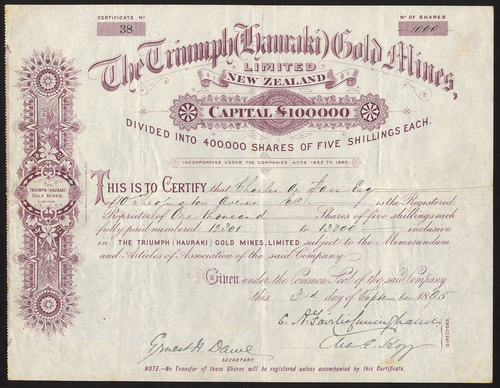 CERTIFICATE No
38
No OF SHARES.
1000
The Triumph (Hauraki) Gold Mines,
LIMITED
NEW ZEALAND
CAPITAL £100000
DIVIDED INTO 400,000 SHARES OF FIVE SHILLINGS EACH.
INCORPORATED UNDER THE COMPANIES ACTS 1862 TO 1890.
THIS IS TO CERTIFY that Charles De Esq
of 10 Avenue EC is the Registered
Proprietor of One thousand Shares of five shillings each
fully paid numbered 12301 to 13300 inclusive
in THE TRIUMPH (HAURAKI) GOLD MINES, LIMITED subject to the Memorandum
and Articles of Association of the said Company
Given under the Common Seal of the said Company
this 3rd day of September 1895
THE
TRIUMPH (HAURAKI)
GOLD MINES,
LIMITED
C. A. Fairlie Cuninghame
DIRECTORS.
Ernest H. Dawe
SECRETARY.
NOTE.—No Transfer of these Shares will be registered unless accompanied by this Certificate.